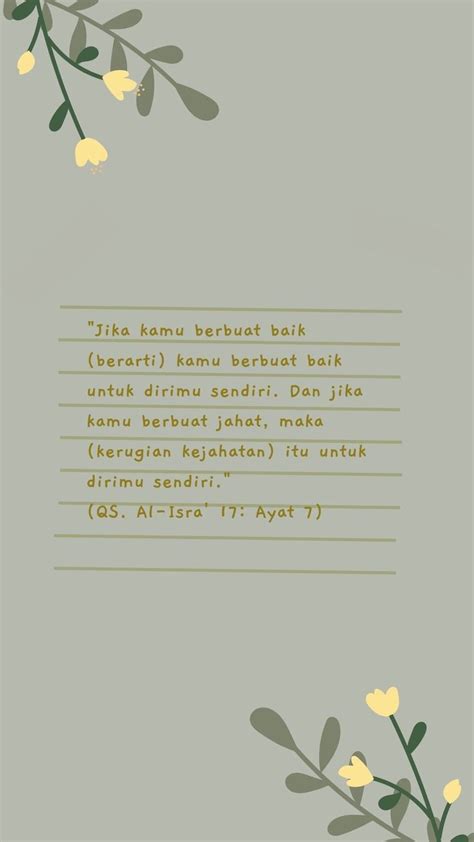 "Jika kamu berbuat baik
(berarti) kamu berbuat baik
untuk dirimu sendiri. Dan jika
kamu berbuat jahat, maka
(kerugian kejahatan) itu untuk
dirimu sendiri."
(QS. Al-Isra' 17: Ayat 7)